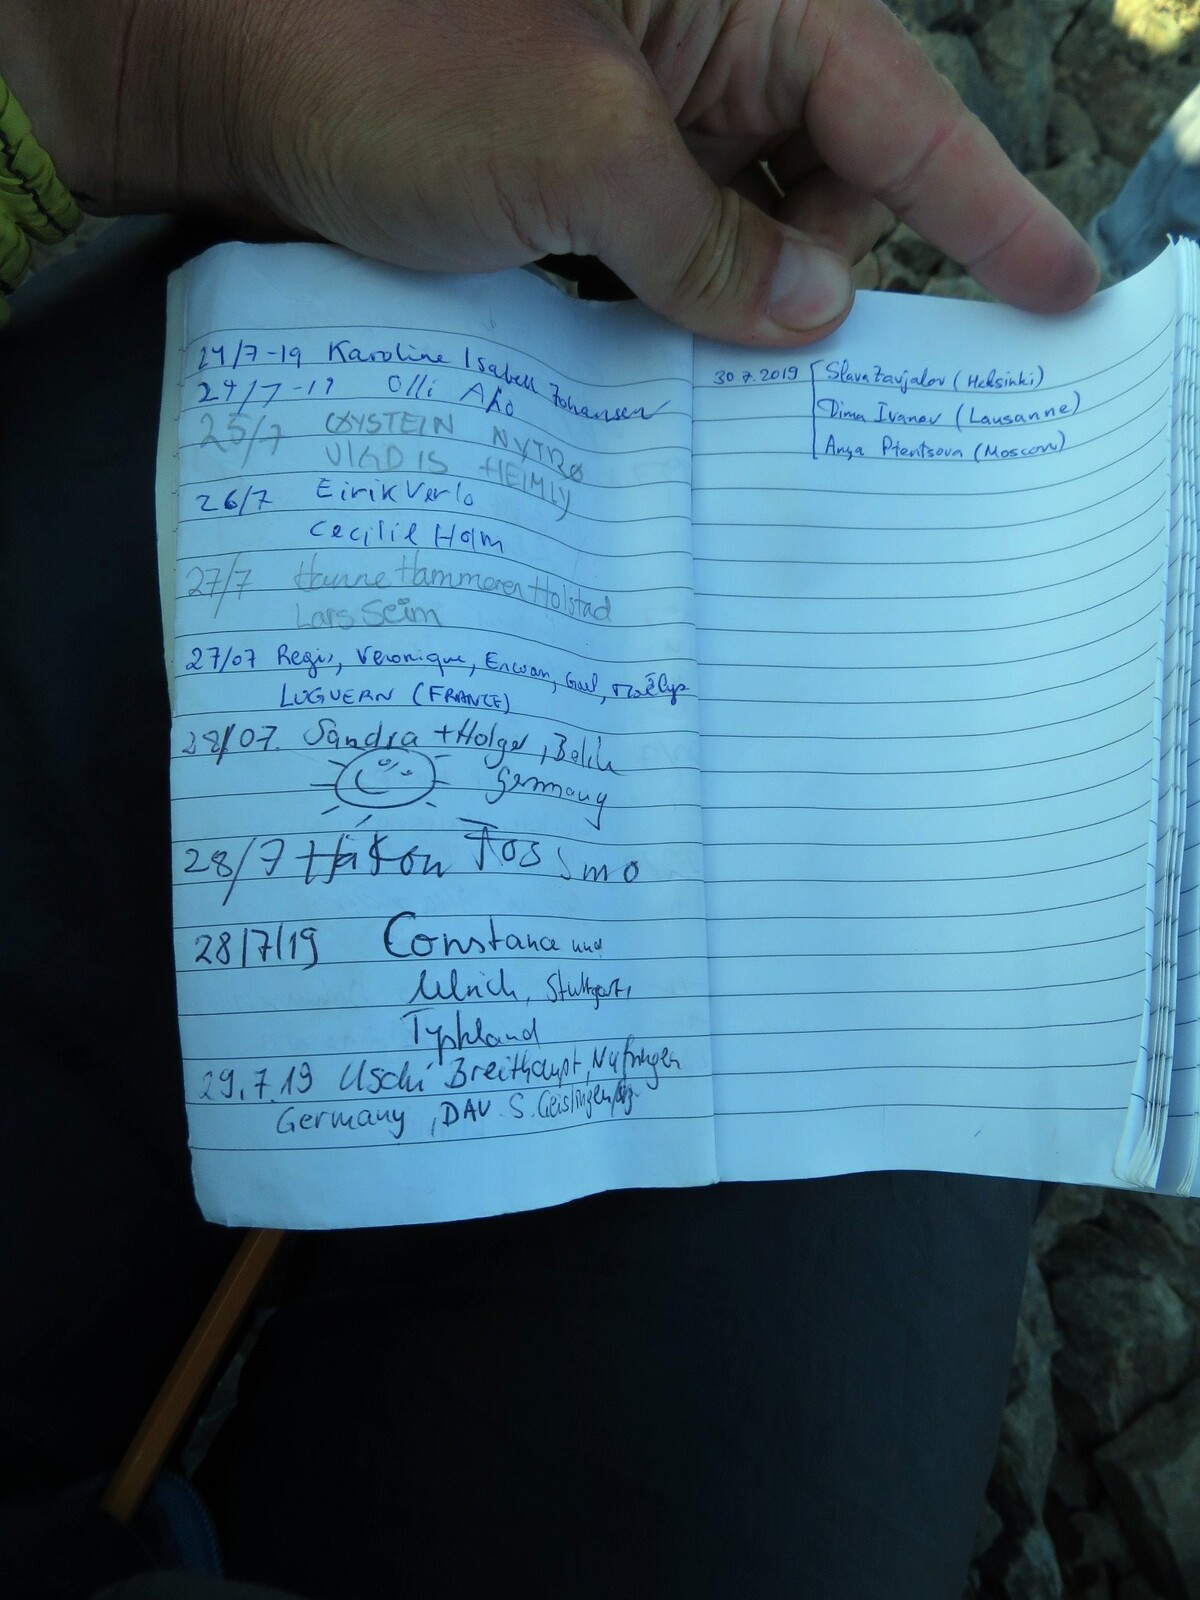 24/7-19 Karoline Isabell Johansen
24/7-19 Olli Aho
25/7 ØYSTEIN NYTRØ
VIGDIS HEIMLY
26/7 Eirik Verlo
Cecilie Holm
27/7 Hanne Hammeren Holstad
Lars Seim
27/07 Regis, Veronique, Erwan, Gael, Maëlys
LUGUERN (FRANCE)
28/07. Sandra + Holger, Berlin
Germany
28/7 Håkon Fossmo
28/7/19 Constance und
Ulrich, Stuttgart,
Tyskland
29.7.19 Uschi Breithaupt, Nufringen
Germany, DAV S. Geislingen/Stg.
30.7.2019 Slava Zavjalov (Helsinki)
Dima Ivanov (Lausanne)
Anya Ptentsova (Moscow)